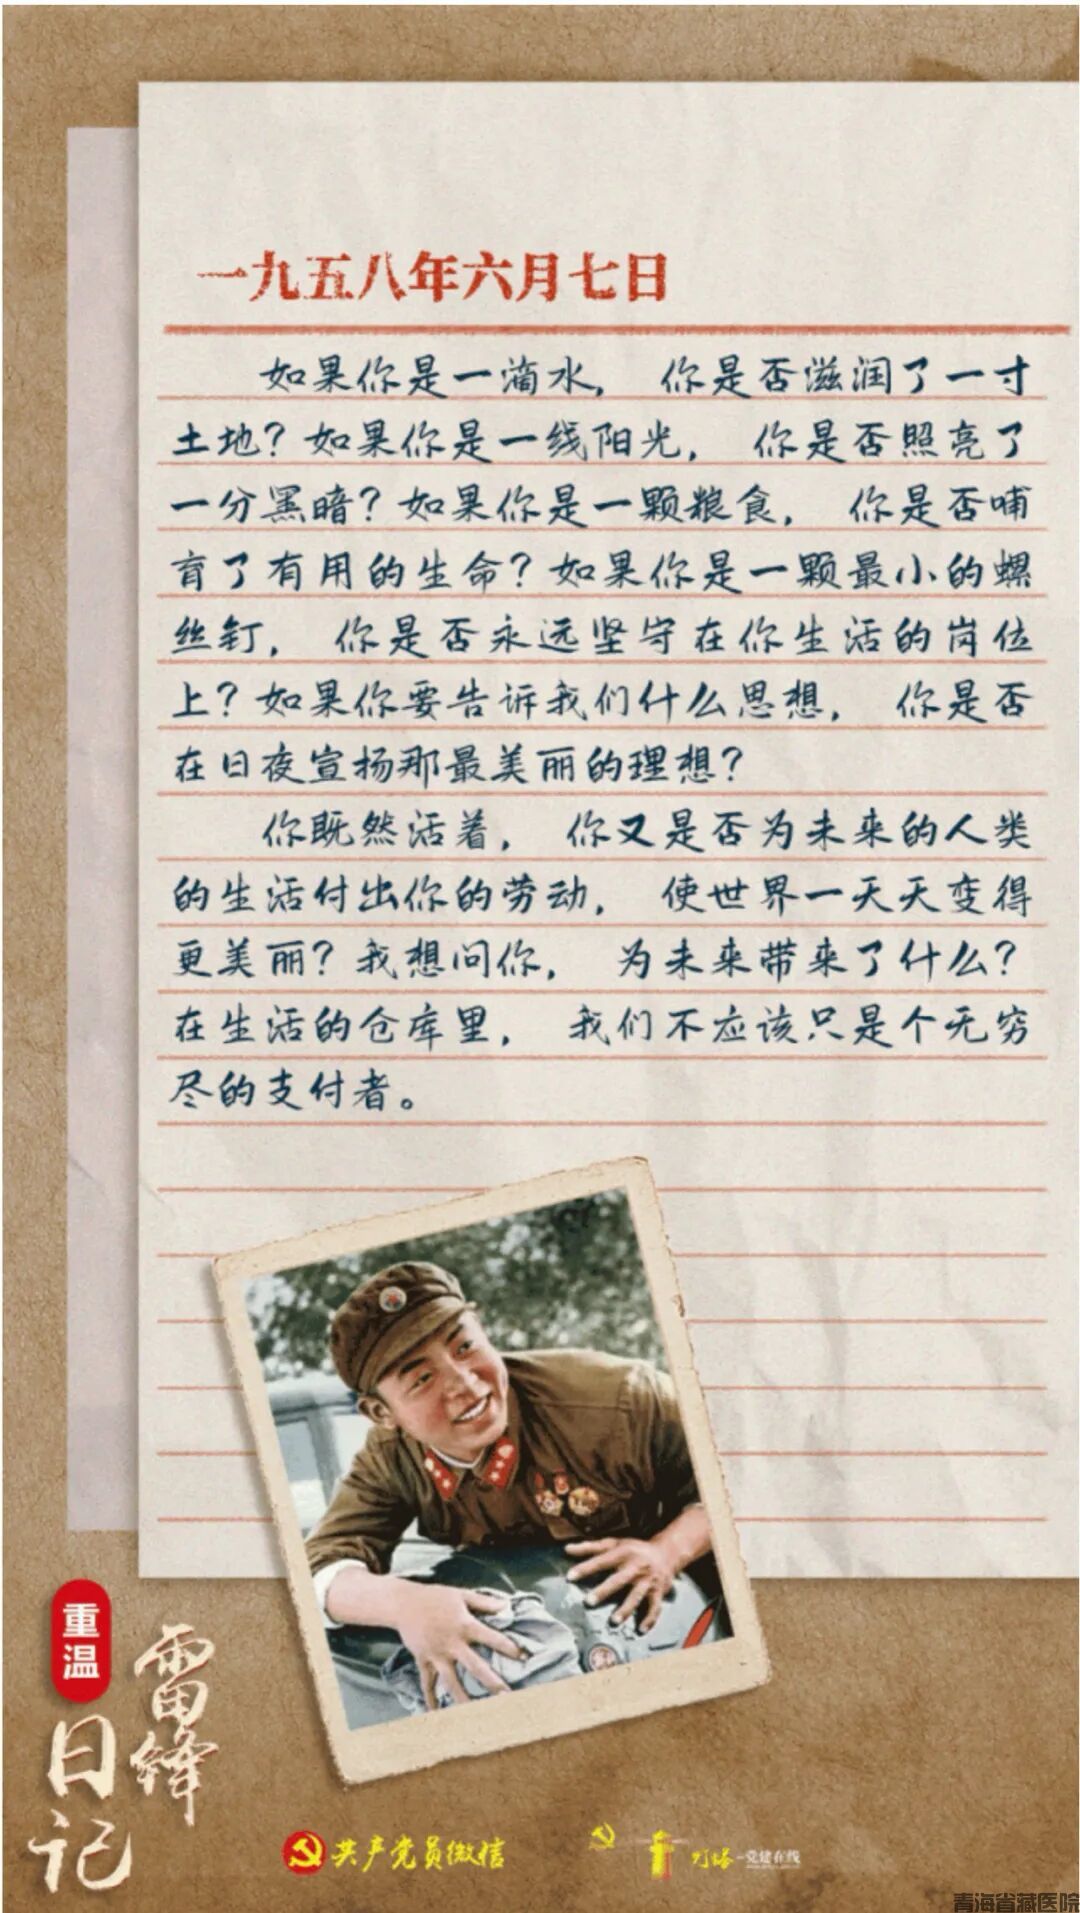 一九五八年六月七日
如果你是一滴水，你是否滋润了一寸
土地？如果你是一线阳光，你是否照亮了
一分黑暗？如果你是一颗粮食，你是否哺
育了有用的生命？如果你是一颗最小的螺
丝钉，你是否永远坚守在你生活的岗位
上？如果你要告诉我们什么思想，你是否
在日夜宣扬那最美丽的理想？
你既然活着，你又是否为未来的人类
的生活付出你的劳动，使世界一天天变得
更美丽？我想问你，为未来带来了什么？
在生活的仓库里，我们不应该只是个无穷
尽的支付者。
重温
雷锋
日记
共产党员微信
灯塔-党建在线
青海省藏医院